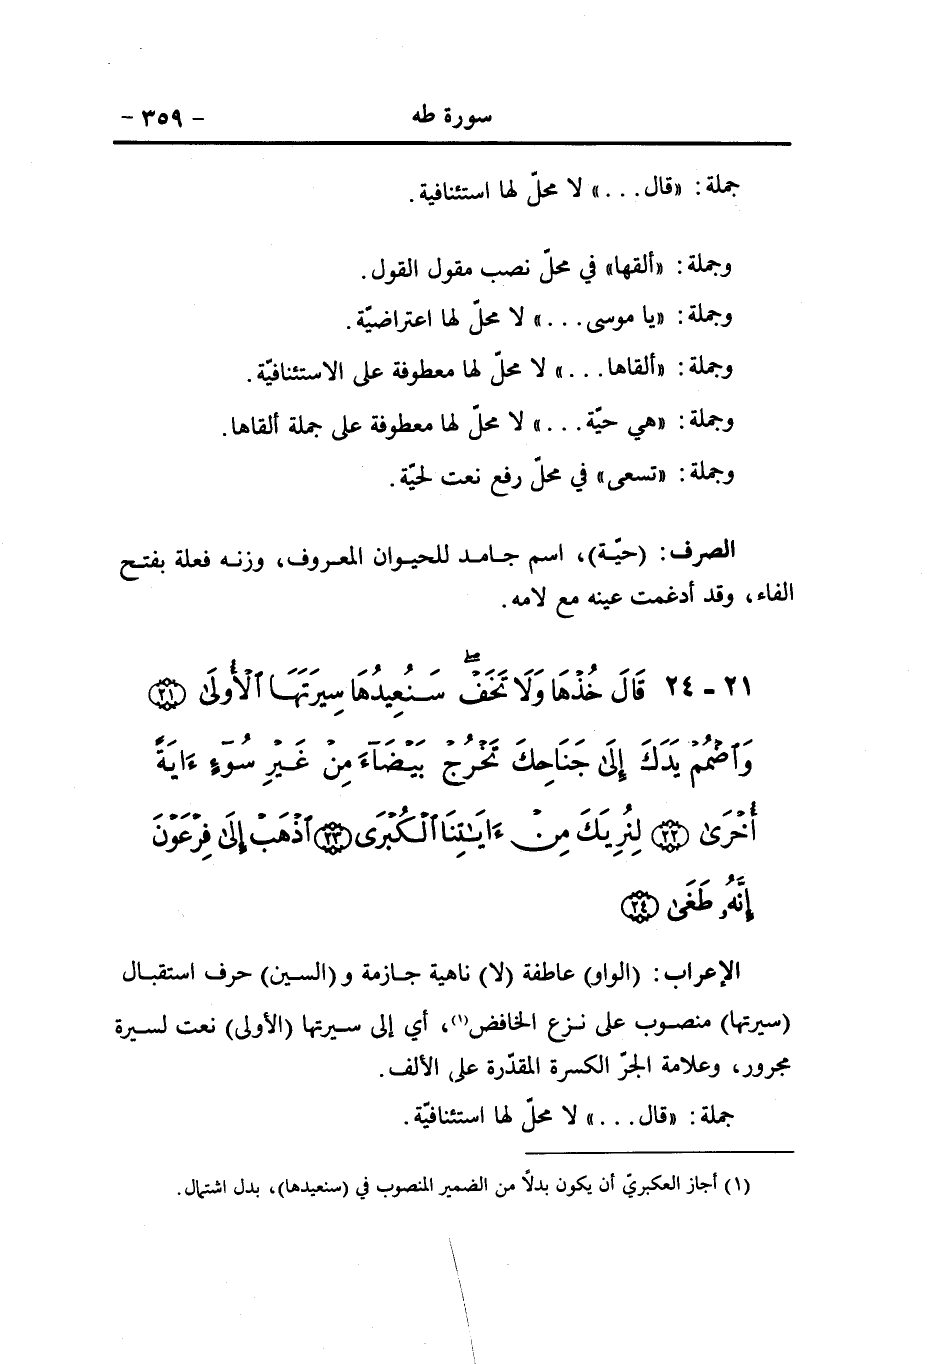 سورة طه - ٣٥٩ -
جملة: «قال...» لا محلّ لها استئنافية.
وجملة: «ألقها» في محلّ نصب مقول القول.
وجملة: «يا موسى...» لا محلّ لها اعتراضيّة.
وجملة: «ألقاها...» لا محلّ لها معطوفة على الاستئنافيّة.
وجملة: «هي حيّة...» لا محلّ لها معطوفة على جملة ألقاها.
وجملة: «تسعى» في محلّ رفع نعت لحيّة.
الصرف: (حيّة)، اسم جامد للحيوان المعروف، وزنه فعلة بفتح
الفاء، وقد أدغمت عينه مع لامه.
٢١ - ٢٤ قَالَ خُذْهَا وَلَا تَخَفْ ۖ سَنُعِيدُهَا سِيرَتَهَا ٱلْأُولَىٰ ﴿٢١﴾
وَٱضْمُمْ يَدَكَ إِلَىٰ جَنَاحِكَ تَخْرُجْ بَيْضَآءَ مِنْ غَيْرِ سُوٓءٍ ءَايَةً
أُخْرَىٰ ﴿٢٢﴾ لِنُرِيَكَ مِنْ ءَايَٰتِنَا ٱلْكُبْرَى ﴿٢٣﴾ ٱذْهَبْ إِلَىٰ فِرْعَوْنَ
إِنَّهُۥ طَغَىٰ ﴿٢٤﴾
الإعراب: (الواو) عاطفة (لا) ناهية جازمة و(السين) حرف استقبال
(سيرتها) منصوب على نزع الخافض(١)، أي إلى سيرتها (الأولى) نعت لسيرة
مجرور، وعلامة الجرّ الكسرة المقدّرة على الألف.
جملة: «قال...» لا محلّ لها استئنافيّة.
(١) أجاز العكبريّ أن يكون بدلًا من الضمير المنصوب في (سنعيدها)، بدل اشتمال.